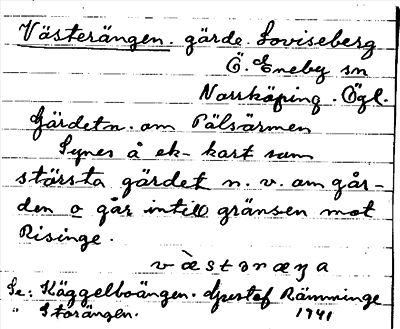 Västerängen. gärde. Loviseberg
Ö. Eneby sn
Norrköping. Ögl.
Gärdet n. om Pälsärmen
Synes å ek-kart som
största gärdet n. v. om går-
den o går intill gränsen mot
Risinge.
Se: Käggelboängen. Gustaf Rämminge
" Storängen. 1941